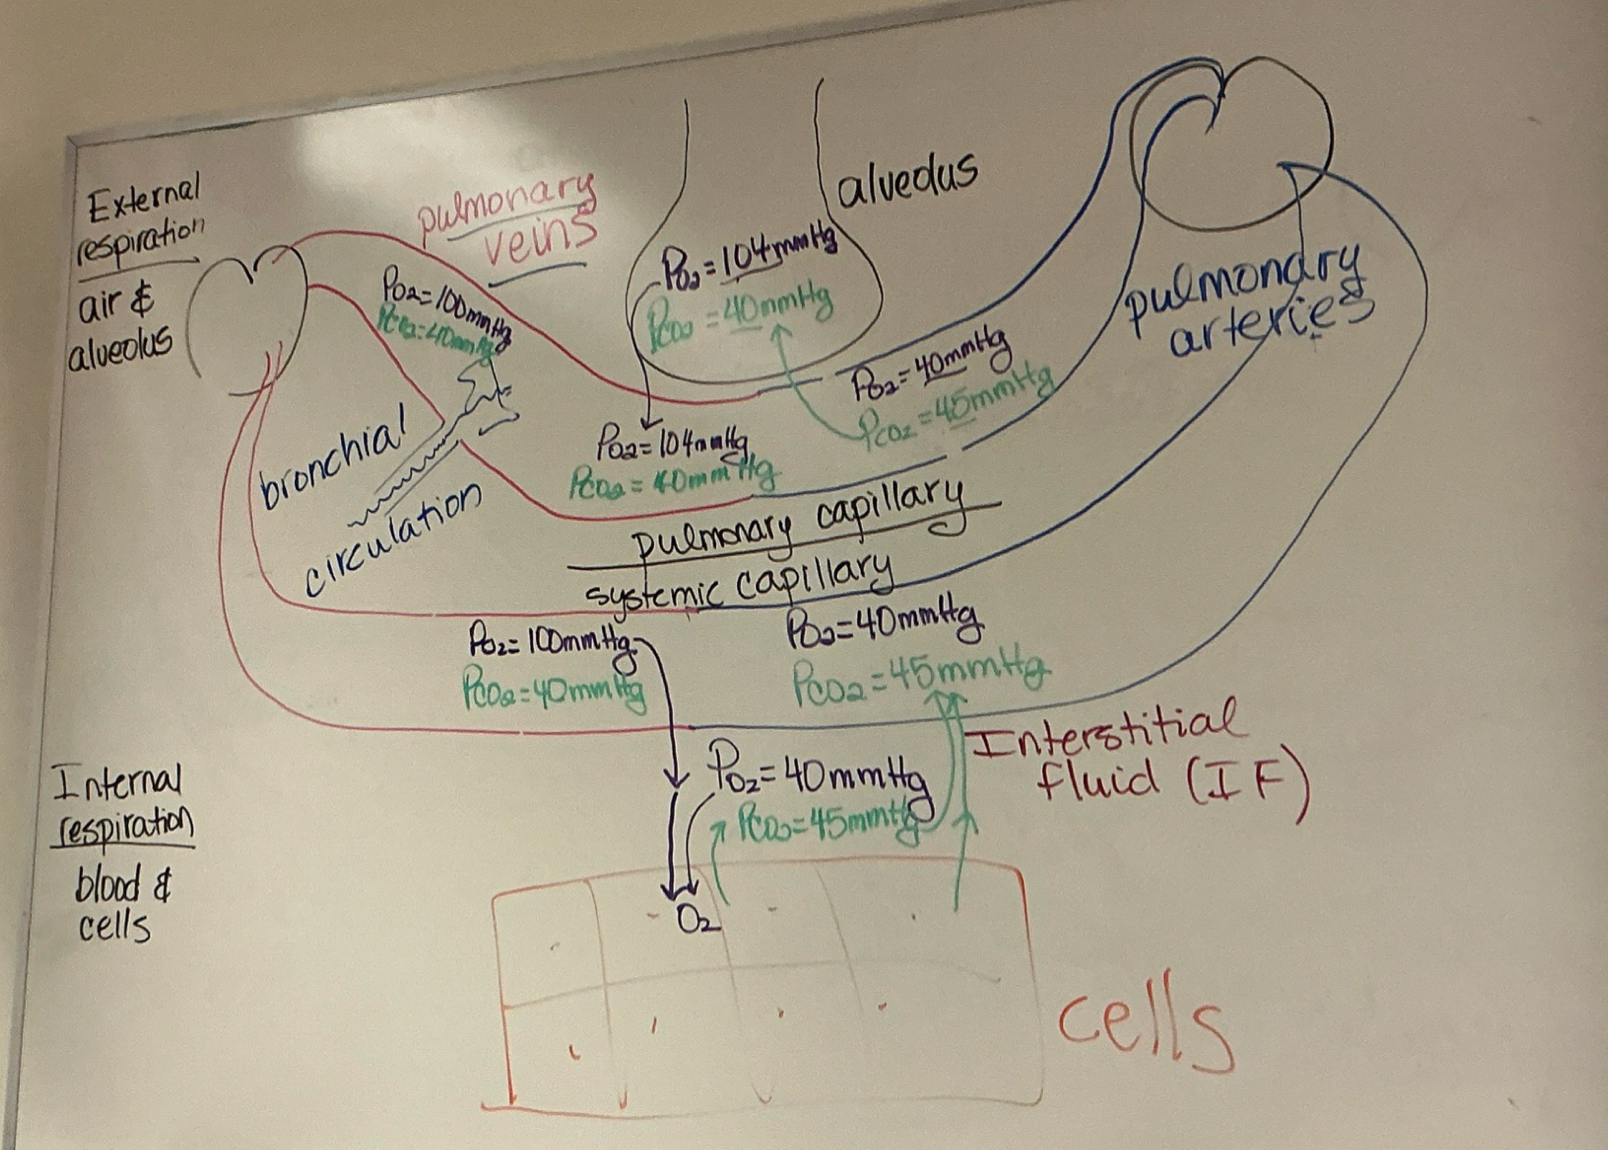 External
respiration
air &
alveolus
pulmonary
veins
alveolus
PO2=104mmHg
PCO2=40mmHg
PO2=100mmHg
PCO2=40mmHg
pulmonary
arteries
PO2=40mmHg
PCO2=45mmHg
PO2=104mmHg
PCO2=40mmHg
bronchial
circulation
pulmonary capillary
systemic capillary
PO2=100mmHg
PCO2=40mmHg
PO2=40mmHg
PCO2=45mmHg
Interstitial
fluid (IF)
Internal
respiration
blood &
cells
PO2=40mmHg
PCO2=45mmHg
O2
cells